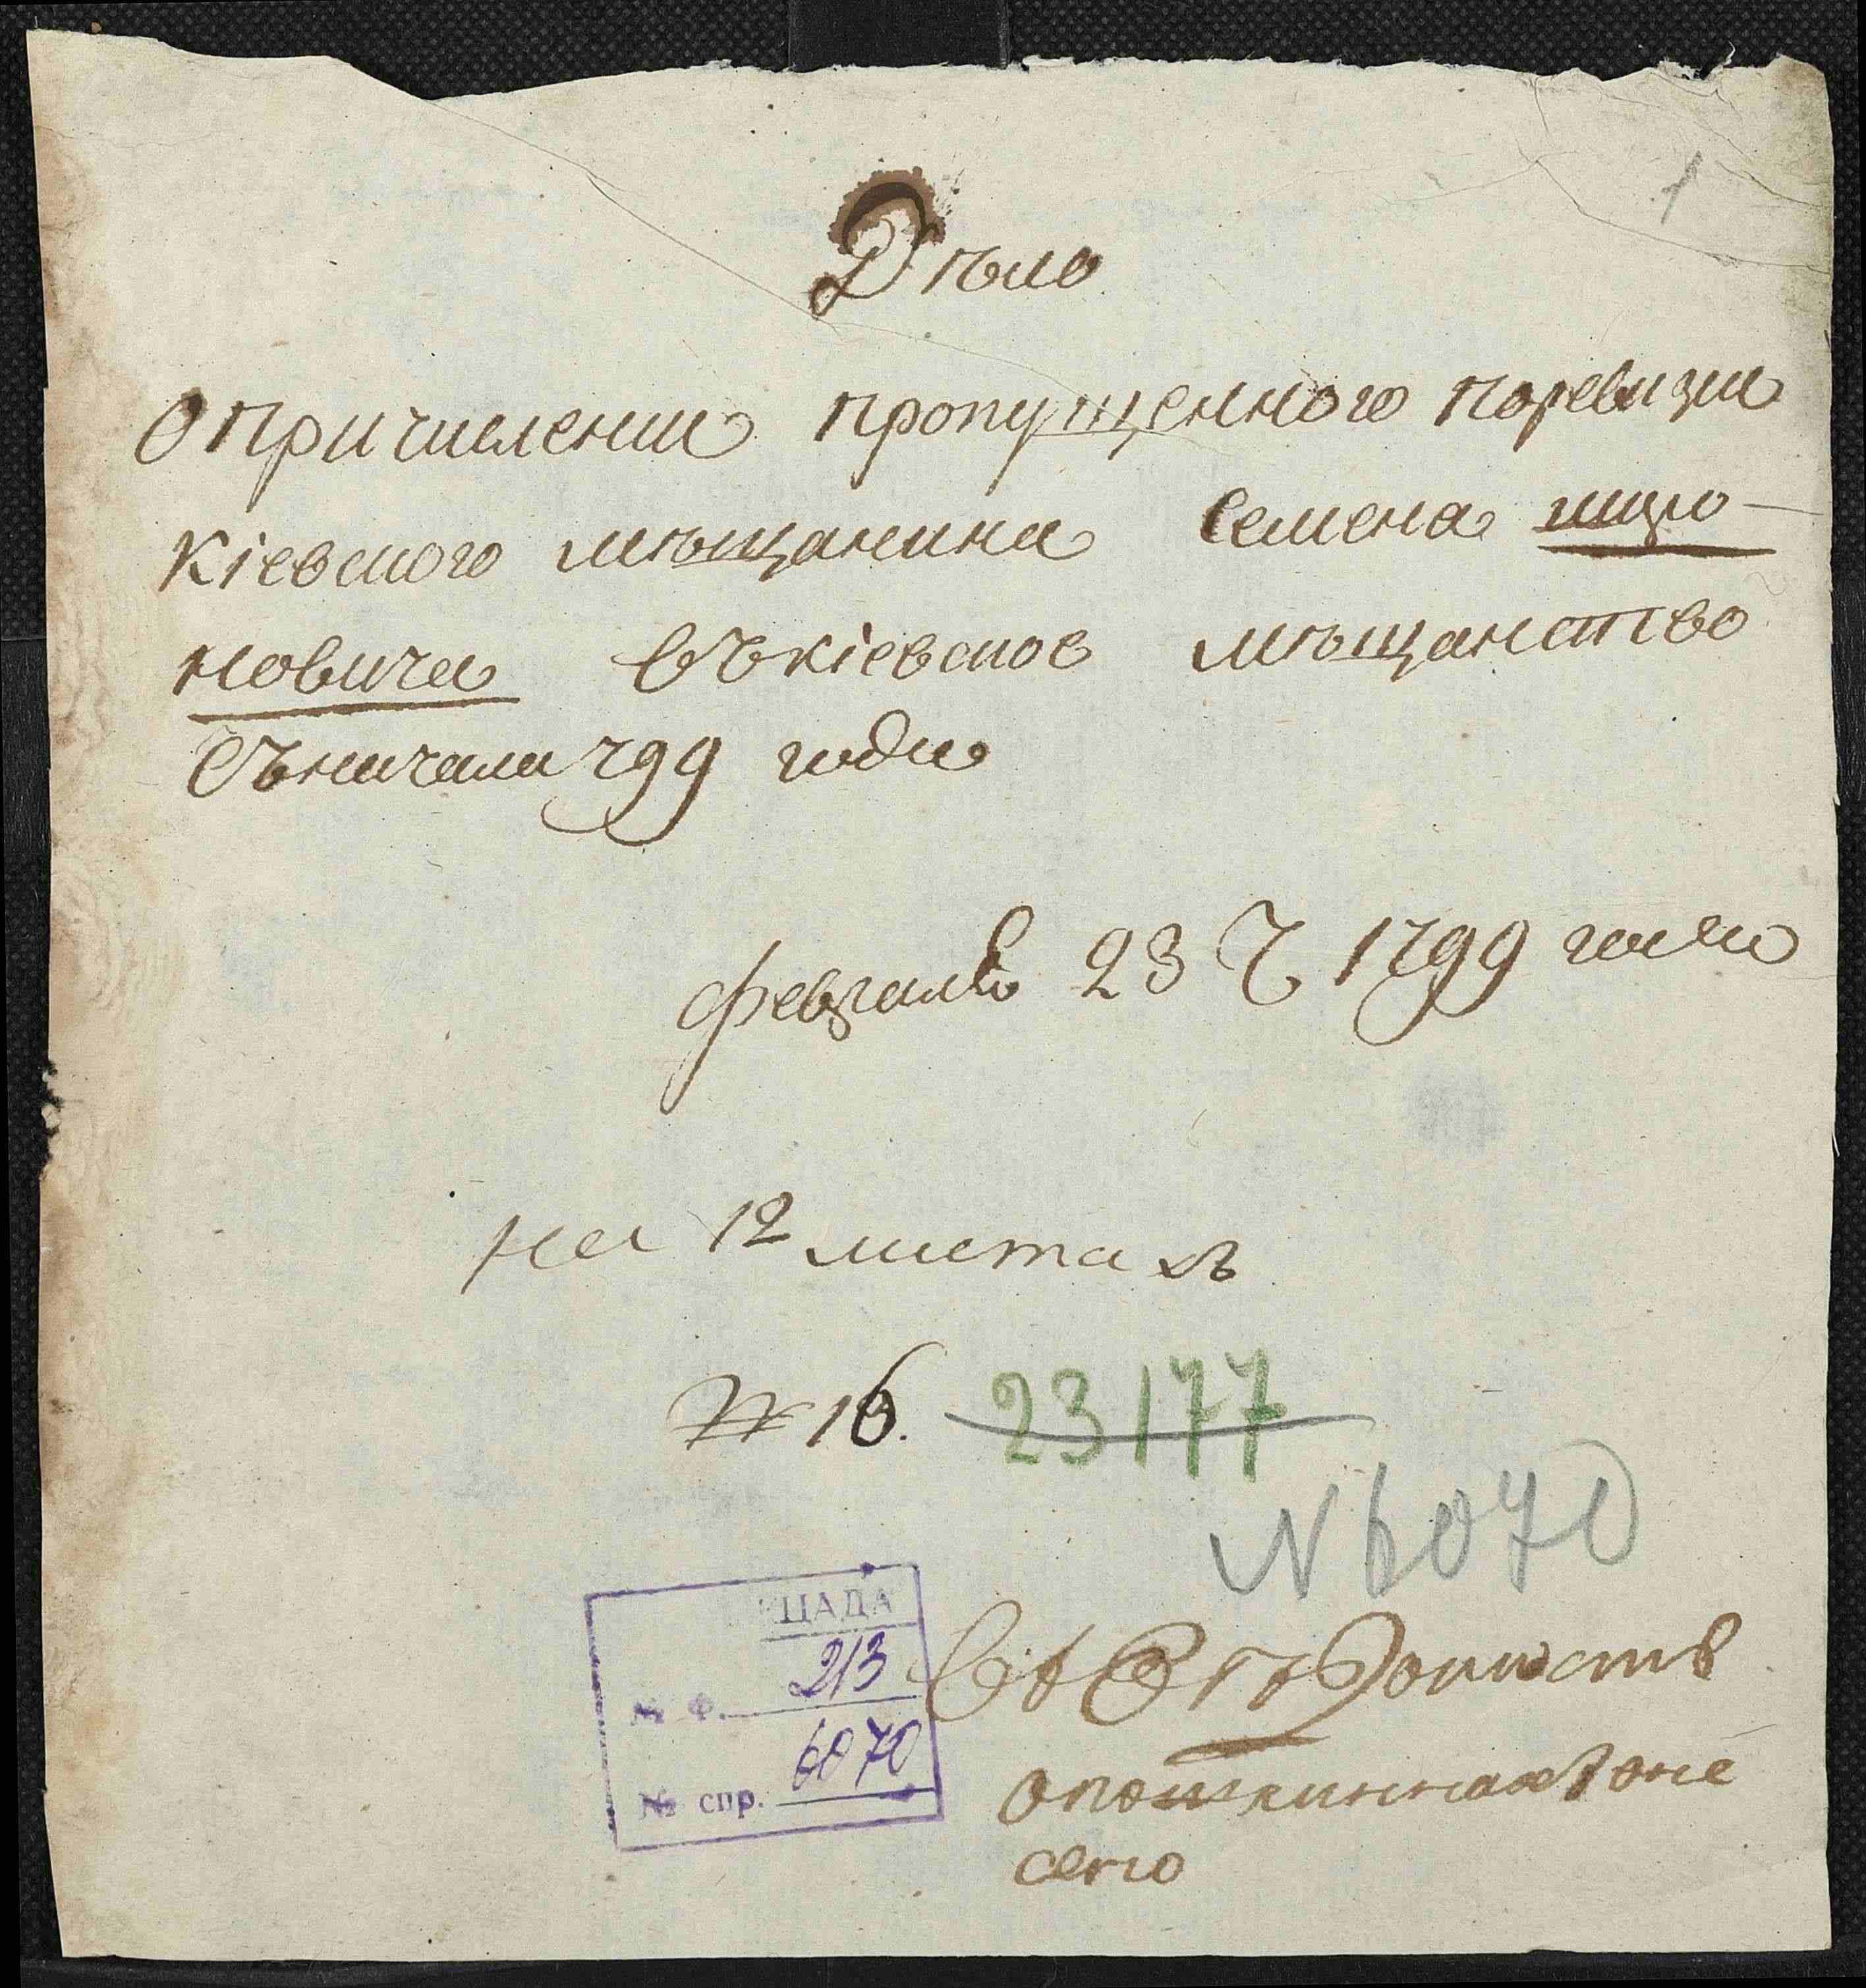 1
Дѣло
О причислении пропущенного поревизии
кіевского мѣщанина Семена миро-
новича въкіевское мѣщанство
Съначала 799 года
февраля 23 Ч 1799 года
на 12 листахъ
№ 16. 23177
N 6070
ЦАДА
№ ф. 213
№ спр. 6070
сего